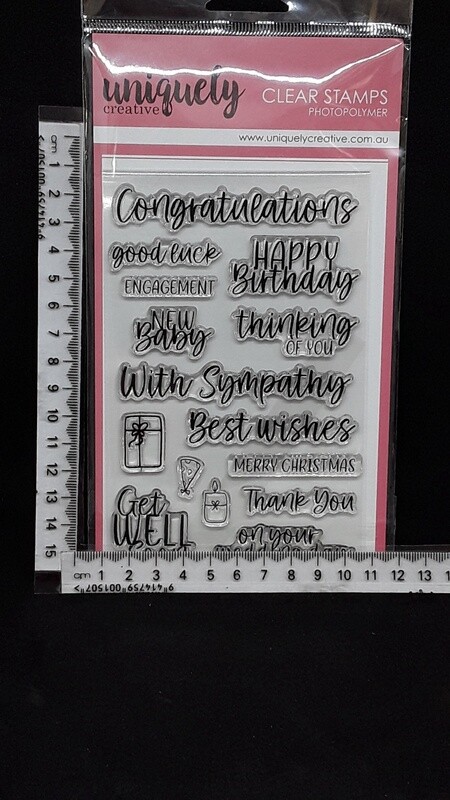 uniquely
creative
CLEAR STAMPS
PHOTOPOLYMER
www.uniquelycreative.com.au
Congratulations
good luck
HAPPY
Birthday
ENGAGEMENT
NEW
Baby
thinking
OF YOU
With Sympathy
Best wishes
MERRY CHRISTMAS
Thank You
Get
WELL
on your
cm 1 2 3 4 5 6 7 8 9 10 11 12 13 14 15
cm 1 2 3 4 5 6 7 8 9 10 11 12 13
9"414759"001507">